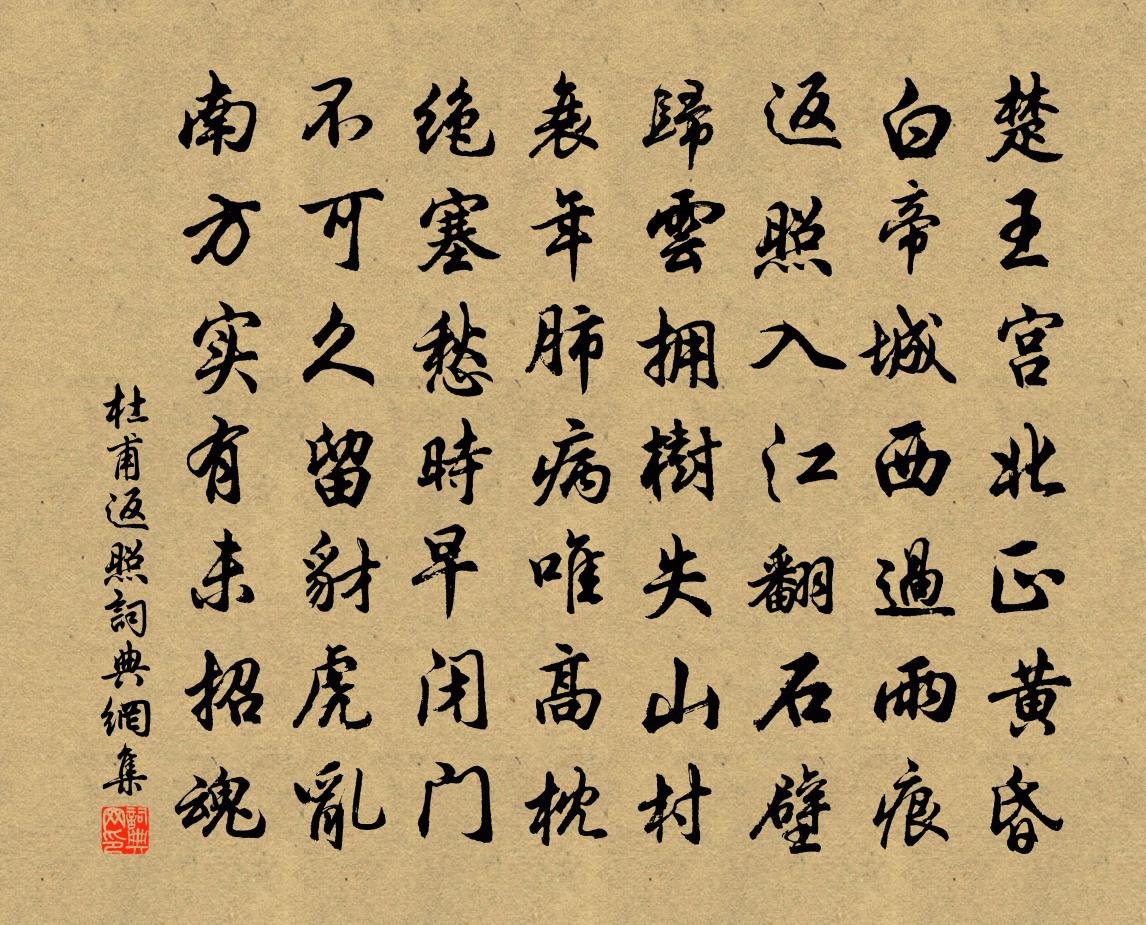 楚王宫北正黄昏
白帝城西過雨痕
返照入江翻石壁
歸雲拥樹失山村
衰年肺病唯高枕
绝塞愁時早闭门
不可久留豺虎亂
南方实有未招魂
杜甫返照詞典網集
詞典网印